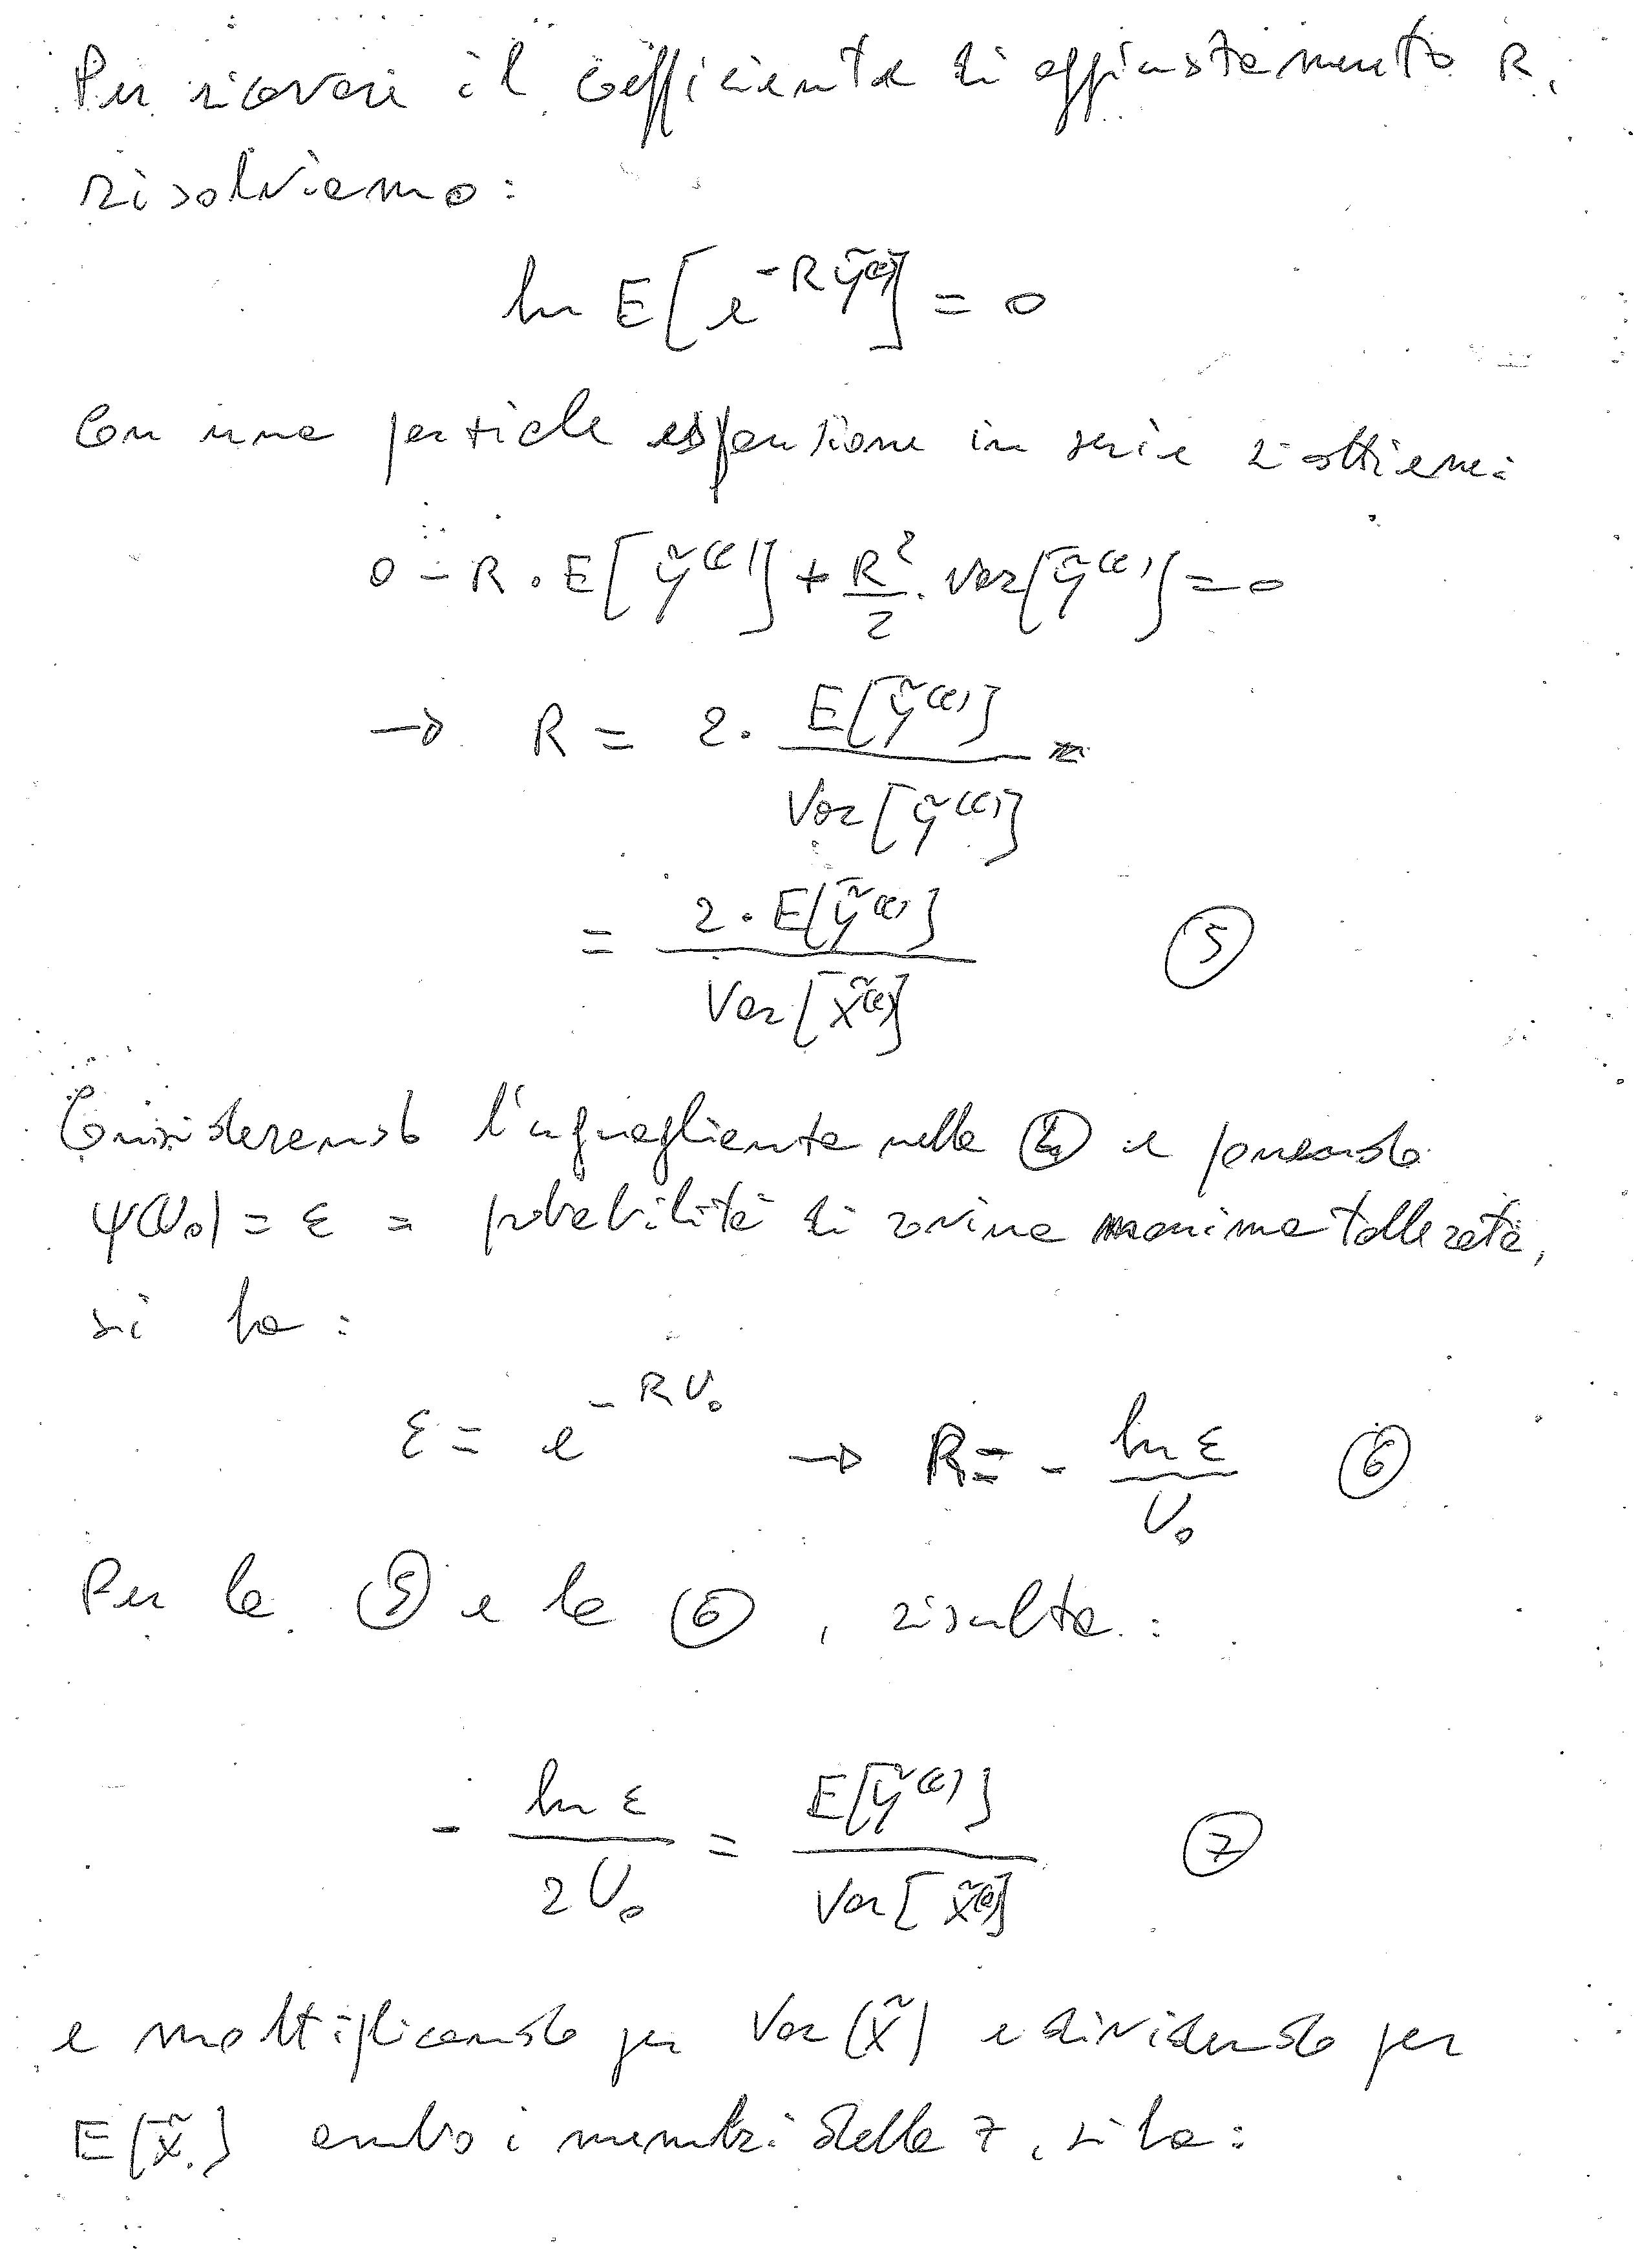 Per ricavare il coefficiente di aggiustamento R,
risolviamo:
ln E[e^{-R ỹ^{(t)}}] = 0
Con una parziale espansione in serie si ottiene:
0 - R · E[ỹ^{(t)}] + R²/2 · Var[ỹ^{(t)}] = 0
→ R = 2 · E[ỹ^{(t)}] / Var[ỹ^{(t)}] =
= 2 · E[ỹ^{(t)}] / Var[x̃^{(t)}] ⑤
Considerando l'uguaglianza nella ④ e ponendo
ψ(U₀) = ε = probabilità di rovina massima tollerata,
si ha:
ε = e^{-RU₀} → R = - ln ε / U₀ ⑥
Per la ⑤ e la ⑥, risulta:
- ln ε / 2U₀ = E[ỹ^{(t)}] / Var[x̃^{(t)}] ⑦
e moltiplicando per Var(x̃) e dividendo per
E[x̃] ambo i membri della 7, si ha: